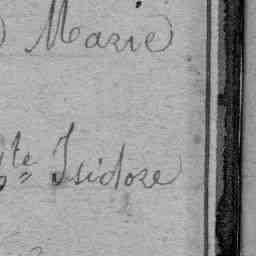 Marie
te Isidore